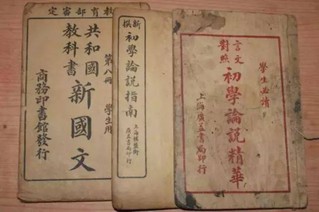 教育部審定
共和國
教科書
新國文
第八冊
學生用
商務印書館發行
新撰
初學論說指南
言文
對照
初學論說精華
學生必讀
上海廣益書局印行